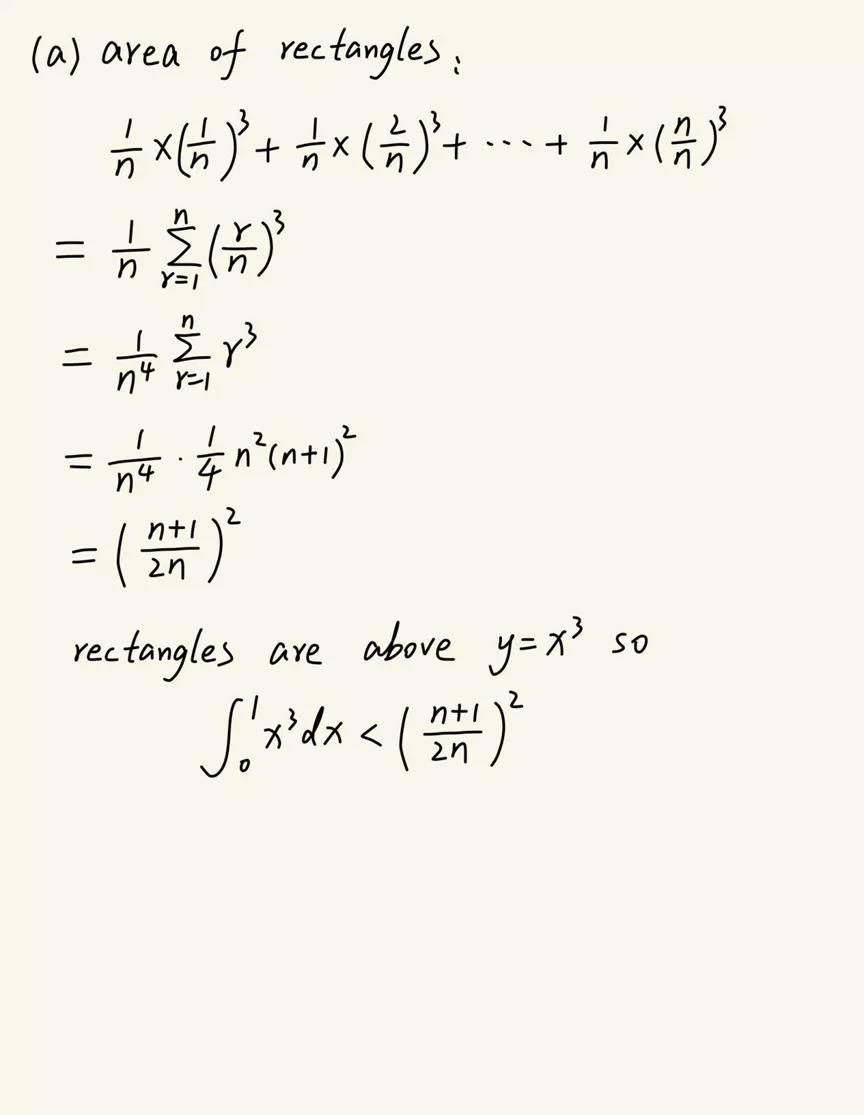 (a) area of rectangles:
1/n ×(1/n)³ + 1/n × (2/n)³ + ··· + 1/n × (n/n)³
= 1/n ∑_{r=1}^{n} (r/n)³
= 1/n⁴ ∑_{r=1}^{n} r³
= 1/n⁴ · 1/4 n²(n+1)²
= ((n+1)/2n)²
rectangles are above y=x³ so
∫₀¹ x³dx < ((n+1)/2n)²